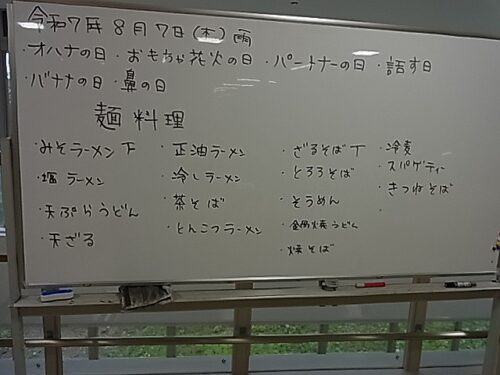 令和7年 8月7日(木) 雨
・オハナの日 ・おもちゃ花火の日 ・パートナーの日 ・話す日
・バナナの日 ・鼻の日
麺料理
・みそラーメン 下
・塩ラーメン
・天ぷらうどん
・天ざる
・正油ラーメン
・冷しラーメン
・茶そば
・とんこつラーメン
・ざるそば T
・とろろそば
・そうめん
・鍋焼うどん
・焼そば
・冷麦
・スパゲティー
・きつねそば
・